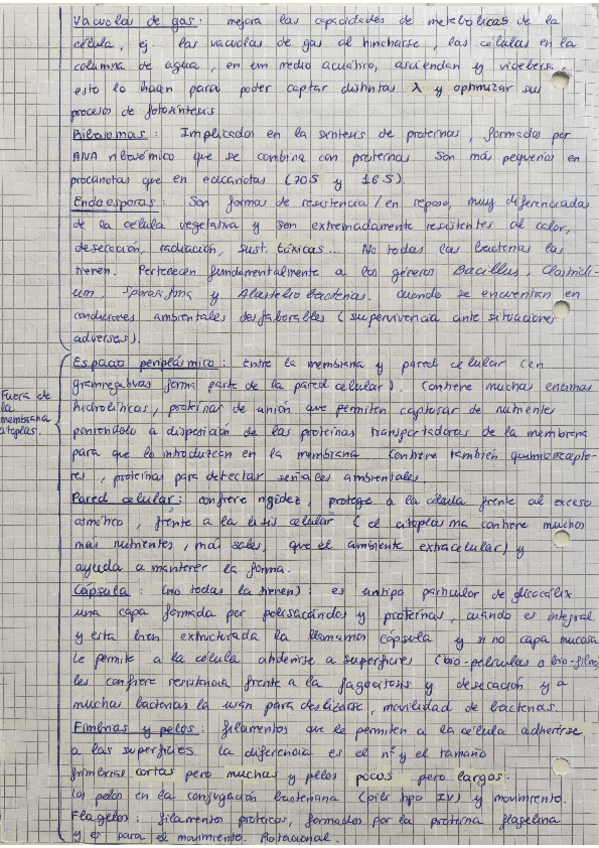 Vacuolas de gas: mejora las capacidades de metabolicas de la
célula, ej. las vacuolas de gas al hincharse, las células en la
columna de agua, en un medio acuático, asciendan y
esto lo hacen para poder captar distintas λ y optimizar sus
procesos de fotosíntesis
Ribosomas: Implicados en la síntesis de proteínas, formados por
ARN ribosómico que se combina con proteínas Son más pequeños en
procariotas que en eucariotas (70S y 16S).
Endoesporas: Son formas de resistencia/en reposo, muy diferenciadas
de la célula vegetativa y son extremadamente resistentes al calor,
desecación, radiación, sust. tóxicas... No todas las bacterias las
tienen. Pertenecen fundamentalmente a los géneros Bacillus, Clostridi-
um, y bacterias. cuando se encuentran en
condiciones ambientales desfaborables (supervivencia ante situaciones
adversas).
Fuera de
la
membrana
citoplas.
Espacio periplásmico: Entre la membrana y pared celular (en
gramnegativas forma parte de la pared celular). Contiene muchas enzimas
hidrolíticas, proteínas de unión que permiten capturar de nutriente
poniendolo a disposición de las proteínas transportadoras de la membrana
para que lo introduzcan en la membrana. Contiene también quimiorecepto-
res, proteínas para detectar señales ambientales.
Pared celular: confiere rigidez, protege a la célula frente al exceso
osmótico, frente a la lisis celular (el citoplasma contiene muchos
más nutrientes, más sales, que el ambiente extracelular) y
ayuda a mantener la forma.
Cápsula: (no todas la tienen): es un tipo particular de glicocálix
una capa formada por polisacáridos y proteínas, cuando es integral
y esta bien estructurada la llamamos cápsula y si no capa mucosa.
Le permite a la célula adherirse a superficies (bio-películas o bio-films)
les confiere resistencia frente a la fagocitosis y desecación y a
muchas bacterias la usan para deslizarse, movilidad de bacterias.
Fimbrias y pelos: filamentos que le permiten a la célula adherirse
a las superficies. la diferencia es el nº y el tamaño
fimbrias cortas pero muchas y pelos pocos pero largos.
los pelos en la conjugación bacteriana (pili tipo IV) y movimiento.
Flagelos: filamentos proteicos, formados por la proteína flagelina
y es para el movimiento. Rotacional.